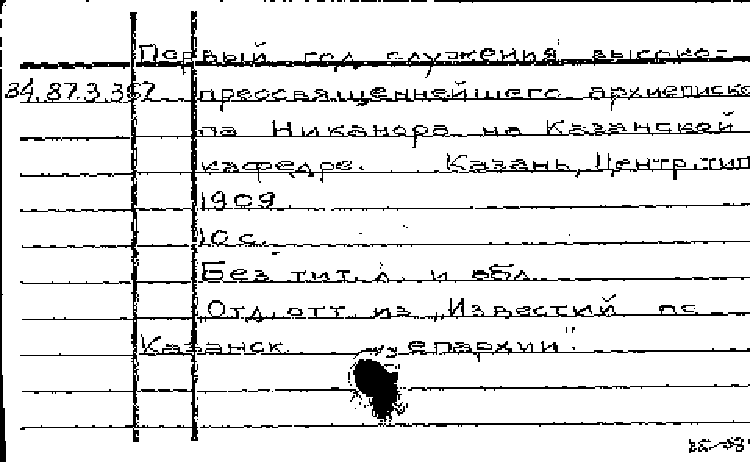 Первый год служения высоко-
34.87.3.367 преосвященнейшего архиеписко
па Никанора на Казанской
кафедре. Казань, Центр. тип
1909
10 с.
Без тит. л. и обл.
Отд. отт. из "Известий по
Казанск. епархии".